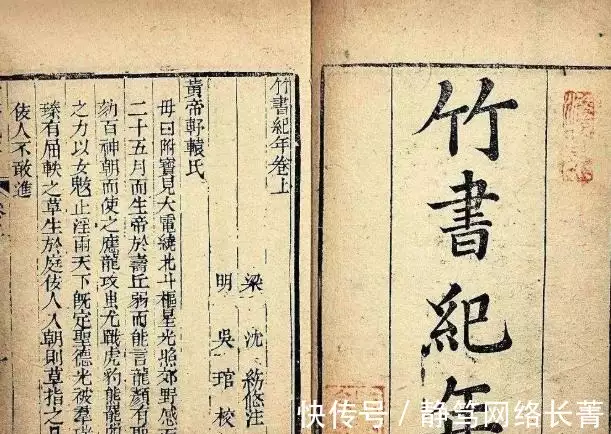 竹書紀年
竹書紀年卷上
梁 沈約修注
明 吳琯校
黃帝軒轅氏
母曰附寶見大電繞北斗樞星光照郊野感而
二十五月而生帝於壽丘弱而能言龍顏有聖
劾百神朝而使之應龍攻蚩尤戰虎豹熊羆
之力以女魃止淫雨天下既定聖德光被羣瑞
臻有屈軼之草生於庭佞人入朝則草指之是
佞人不敢進
快传号/静笃网络长菁